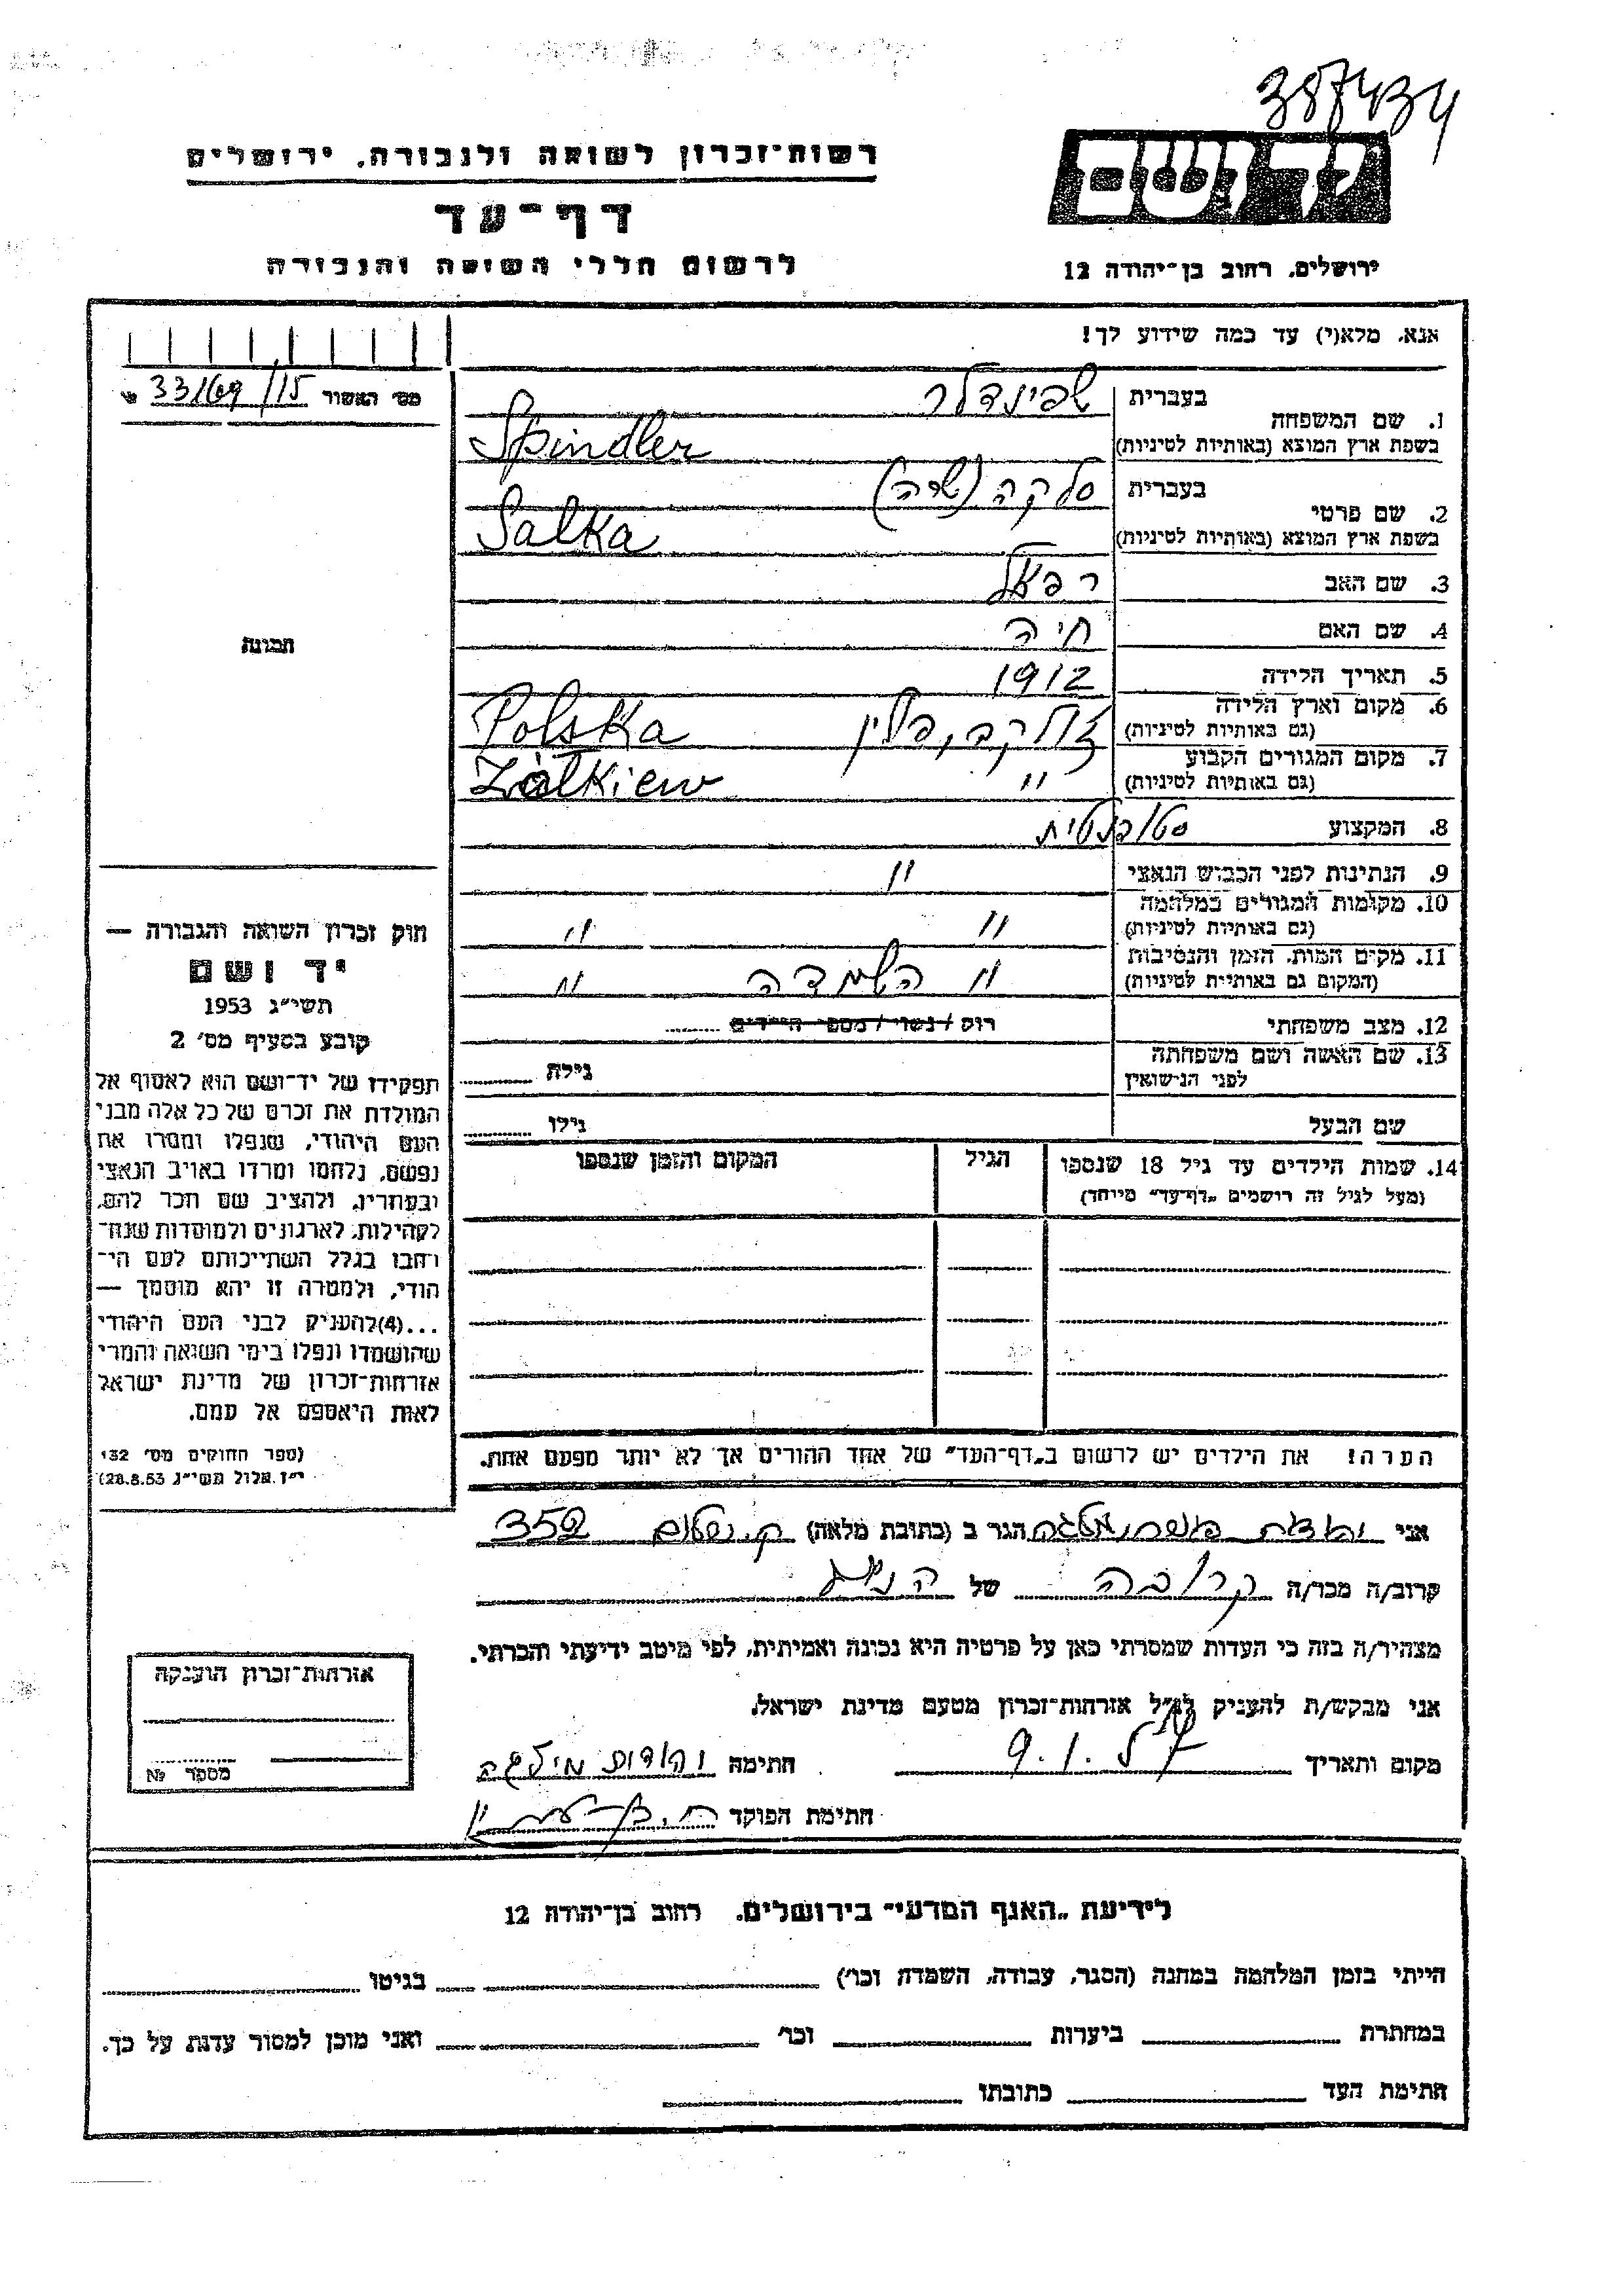 387434
רשות־זכרון לשואה ולגבורה, ירושלים
דף־עד
לרשום חללי השואה והגבורה
יד ושם
ירושלים, רחוב בן־יהודה 12
אנא, מלא(י) עד כמה שידוע לך!
מס׳ האשור 33/69/15
1. שם המשפחה
בעברית שפינדלר
בשפת ארץ המוצא (באותיות לטיניות) Spindler
2. שם פרטי
בעברית סלקה (שרה)
בשפת ארץ המוצא (באותיות לטיניות) Salka
3. שם האב רפאל
4. שם האם חיה
5. תאריך הלידה 1912
6. מקום וארץ הלידה
(גם באותיות לטיניות) ז'ולקב, פולין Polska
7. מקום המגורים הקבוע
(גם באותיות לטיניות) " Żółkiew
8. המקצוע סטודנטית
9. הנתינות לפני הכבוש הנאצי "
10. מקומות המגורים במלחמה
(גם באותיות לטיניות) " "
11. מקום המות, הזמן והנסיבות
(המקום גם באותיות לטיניות) " השמדה "
12. מצב משפחתי רוק / נשוי / מספר הילדים
13. שם האשה ושם משפחתה
לפני הנישואין גילה
שם הבעל גילו
14. שמות הילדים עד גיל 18 שנספו
(מעל לגיל זה רושמים „דף־עד” מיוחד)
הגיל
המקום והזמן שנספו
הערה! את הילדים יש לרשום ב„דף־העד” של אחד ההורים אך לא יותר מפעם אחת.
תמונה
חוק זכרון השואה והגבורה —
יד ושם
תשי״ג 1953
קובע בסעיף מס׳ 2
תפקידו של יד־ושם הוא לאסוף אל
המולדת את זכרם של כל אלה מבני
העם היהודי, שנפלו ומסרו את
נפשם, נלחמו ומרדו באויב הנאצי
ובעוזריו, ולהציב שם וזכר להם,
לקהילות, לארגונים ולמוסדות שנח־
רבו בגלל השתייכותם לעם הי־
הודי, ולמטרה זו יהא מוסמך —
...(4)להעניק לבני העם היהודי
שהושמדו ונפלו בימי השואה והמרי
אזרחות־זכרון של מדינת ישראל
לאות היאספם אל עמם.
(ספר החוקים מס׳ 132
י״ז אלול תשי״ג 28.8.53)
אני יהודית הגר ב (כתובת מלאה) 352
קרוב/ה מכר/ה קרובה של הנ"ל
מצהיר/ה בזה כי העדות שמסרתי כאן על פרטיה היא נכונה ואמיתית, לפי מיטב ידיעתי והכרתי.
אני מבקש/ת להעניק לנ״ל אזרחות־זכרון מטעם מדינת ישראל.
מקום ותאריך 9.1.57 חתימה יהודית
חתימת הפוקד
אזרחות־זכרון הוענקה
מספר №
לידיעת „האגף המדעי” בירושלים, רחוב בן־יהודה 12
הייתי בזמן המלחמה במחנה (הסגר, עבודה, השמדה וכו׳) בגיטו
במחתרת ביערות וכו׳ ואני מוכן למסור עדות על כך.
חתימת העד כתובתו